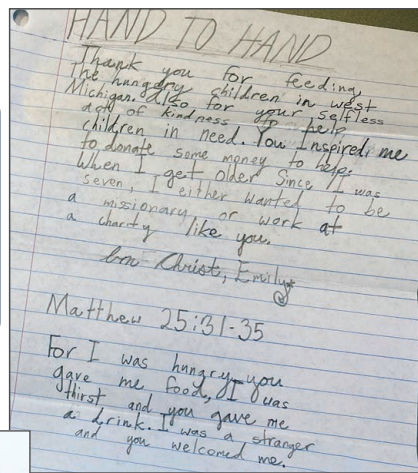 HAND TO HAND
Thank you for feeding,
The hungary children in west
Michigan. also for your selfless
act of kindness to help
children in need. You Inspired me
to donate some money to help.
When I get older Since I was
seven, I either wanted to be
a missionary or work at
a charity like you.
In Christ, Emily
Matthew 25:31-35
For I was hungry you
gave me food, I was
thirst and you gave me
a drink. I was a stranger
and you welcomed me.